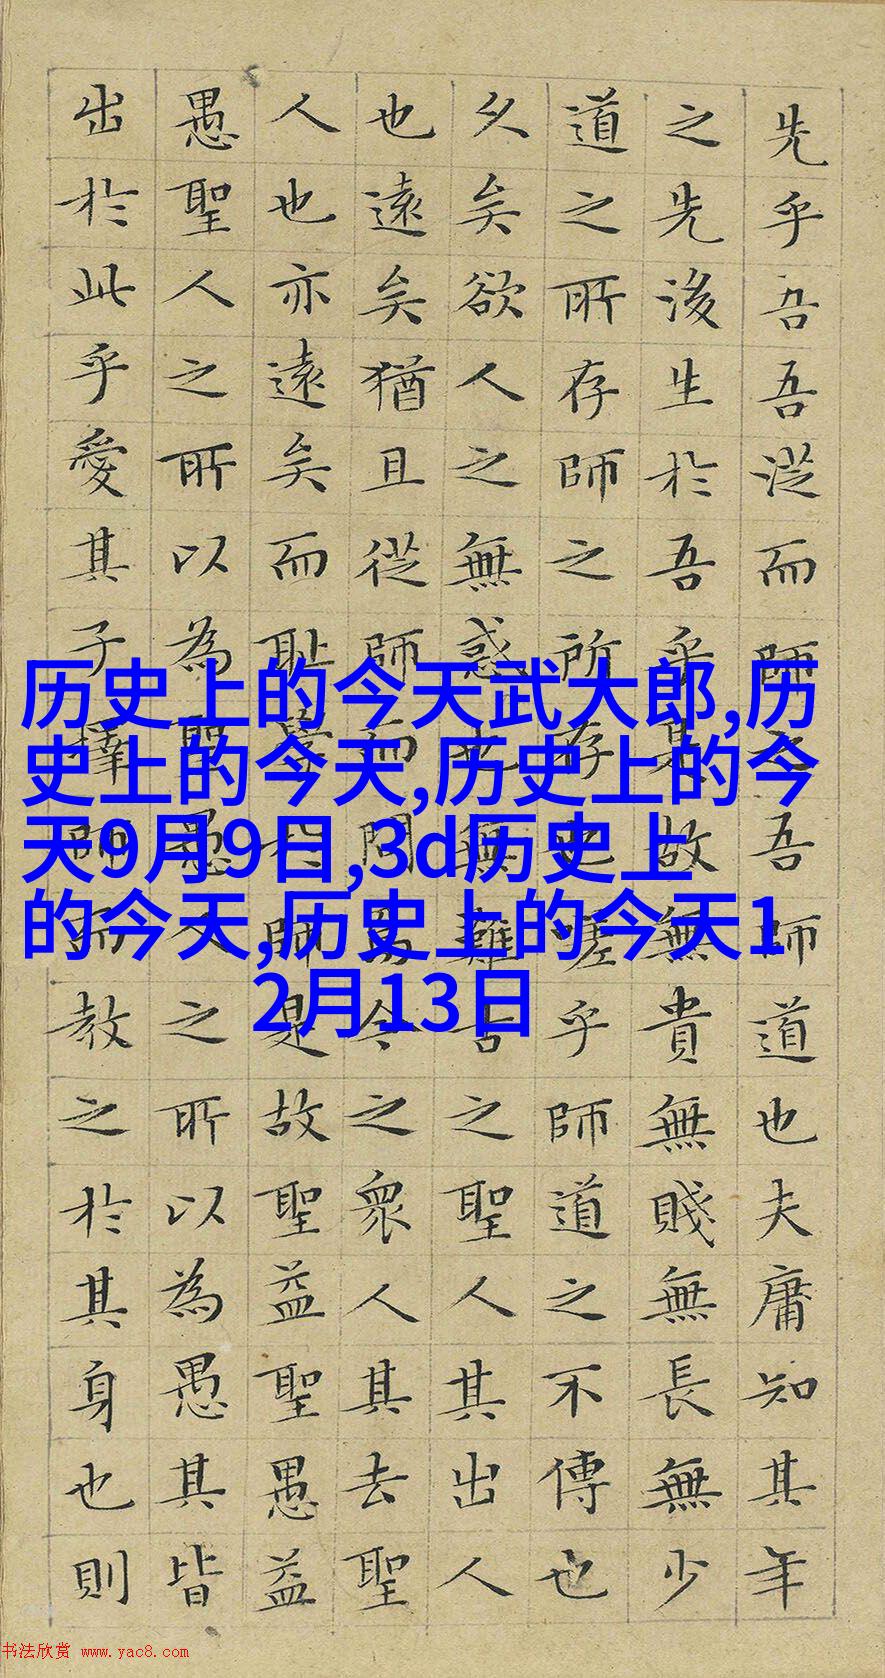 先乎吾吾從而師之吾師道也夫庸知其年
之先後生於吾乎是故無貴無賤無長無少
道之所存師之所存也嗟乎師道之不傳也
久矣欲人之無惑也無難古之聖人其出人
也遠矣猶且從師而問焉今之衆人其去聖
人也亦遠矣而恥學於師是故聖益聖愚益
愚聖人之所以為聖愚人之所以為愚其皆
出於此乎愛其子擇師而教之於其身也則
历史上的今天武大郎,历
史上的今天,历史上的今
天9月9日,3d历史上
的今天,历史上的今天1
2月13日
书法欣赏 www.yac8.com